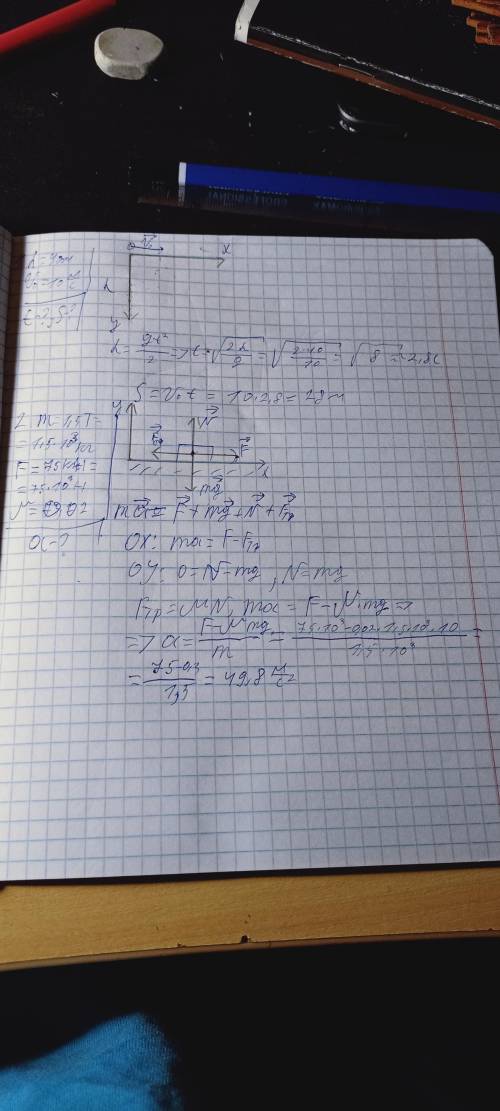 V⃗₀ x
h=40м
V₀=10 м/с
h
t-? S-?
y
h = gt²/2 => t = √(2h/g) = √(2·40/10) = √8 = 2,8с
S = V₀t = 10·2,8 = 28м
y N⃗
2 m=1,5т=
=1,5·10³кг
F⃗тр F⃗
F=75кН=
=75·10³Н
x
mg⃗
μ=0,02
ma⃗ = F⃗ + mg⃗ + N⃗ + F⃗тр
a-?
OX: ma = F-Fтр
OY: 0=N-mg, N=mg
Fтр=μN, ma = F-μmg =>
=> a = (F-μmg)/m = (75·10³-0,02·1,5·10³·10)/(1,5·10³) =
= (75-0,3)/1,5 = 49,8 м/с²